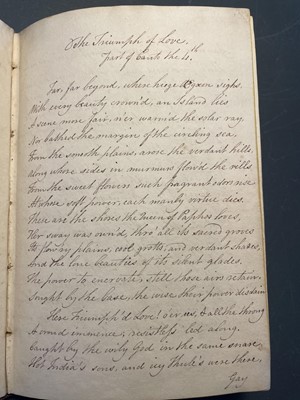 The Triumph of Love.
Part of Canto the 4th
Far, far beyond, where huge Ægeon sighs
With every beauty crown'd, an Island lies
A scene more fair, ne'er warm'd the solar ray
Nor bathed the margin of the circling sea
From the smooth plains, arose the verdant hills
Along whose sides in murmurs flow'd the rills
From the sweet flowers such fragrant odors rise
At whose soft power, each manly virtue dies.
These are the shores the Queen of Paphos loves,
Her sway was own'd, thro' all its sacred groves
Its flow'ry plains, cool grotts, and verdant shades,
And the lone beauties of its silent glades.
The power to enervate, still those airs retain
Sought by the base, the wise their power disdain
Here Triumph'd Love! o'er us, & all the throng
A crowd immence, resistless led along.
Caught by the wily God in the same snare
Hot India's sons, and icy Thule's were there
Gay